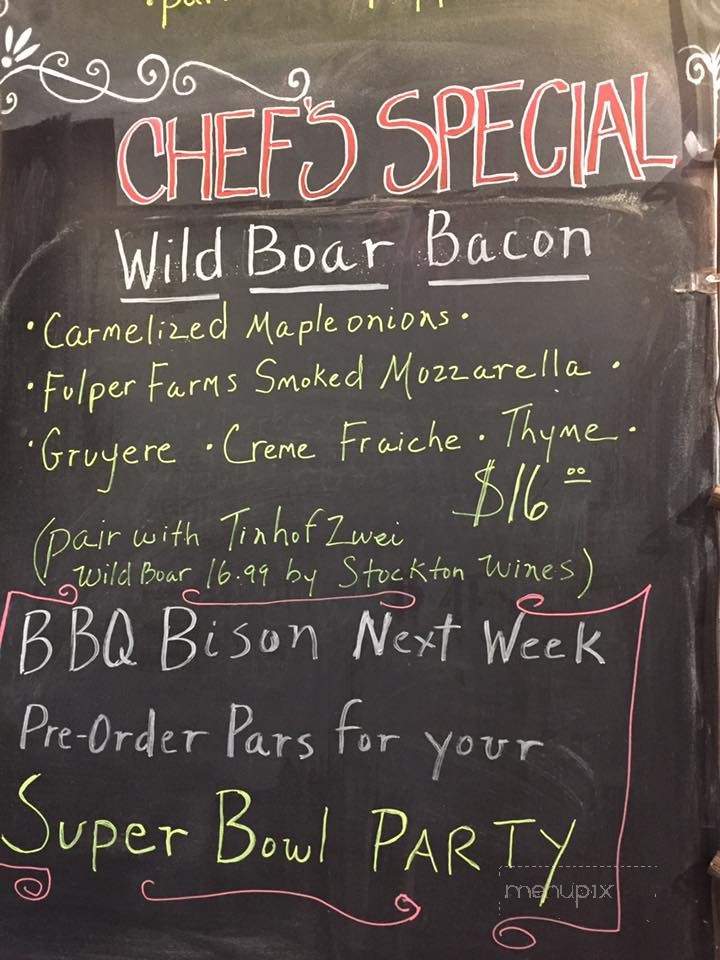 CHEF'S SPECIAL
Wild Boar Bacon
• Carmelized Maple onions •
• Fulper Farms Smoked Mozzarella •
• Gruyere • Creme Fraiche • Thyme •
$16.00
(pair with Tinhof Zwei
Wild Boar 16.99 by Stockton Wines)
BBQ Bison Next Week
Pre-Order Pars for your
Super Bowl PARTY
menupix